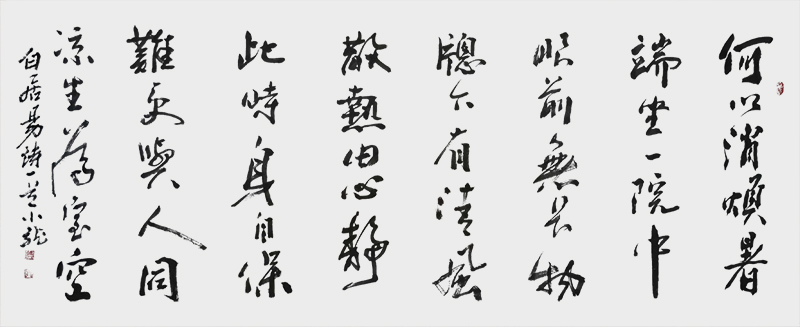 何以消煩暑
端坐一院中
眼前無長物
牕下有清風
散熱由心靜
此時身自保
難更與人同
凉生為室空
白居易詩一首小龍